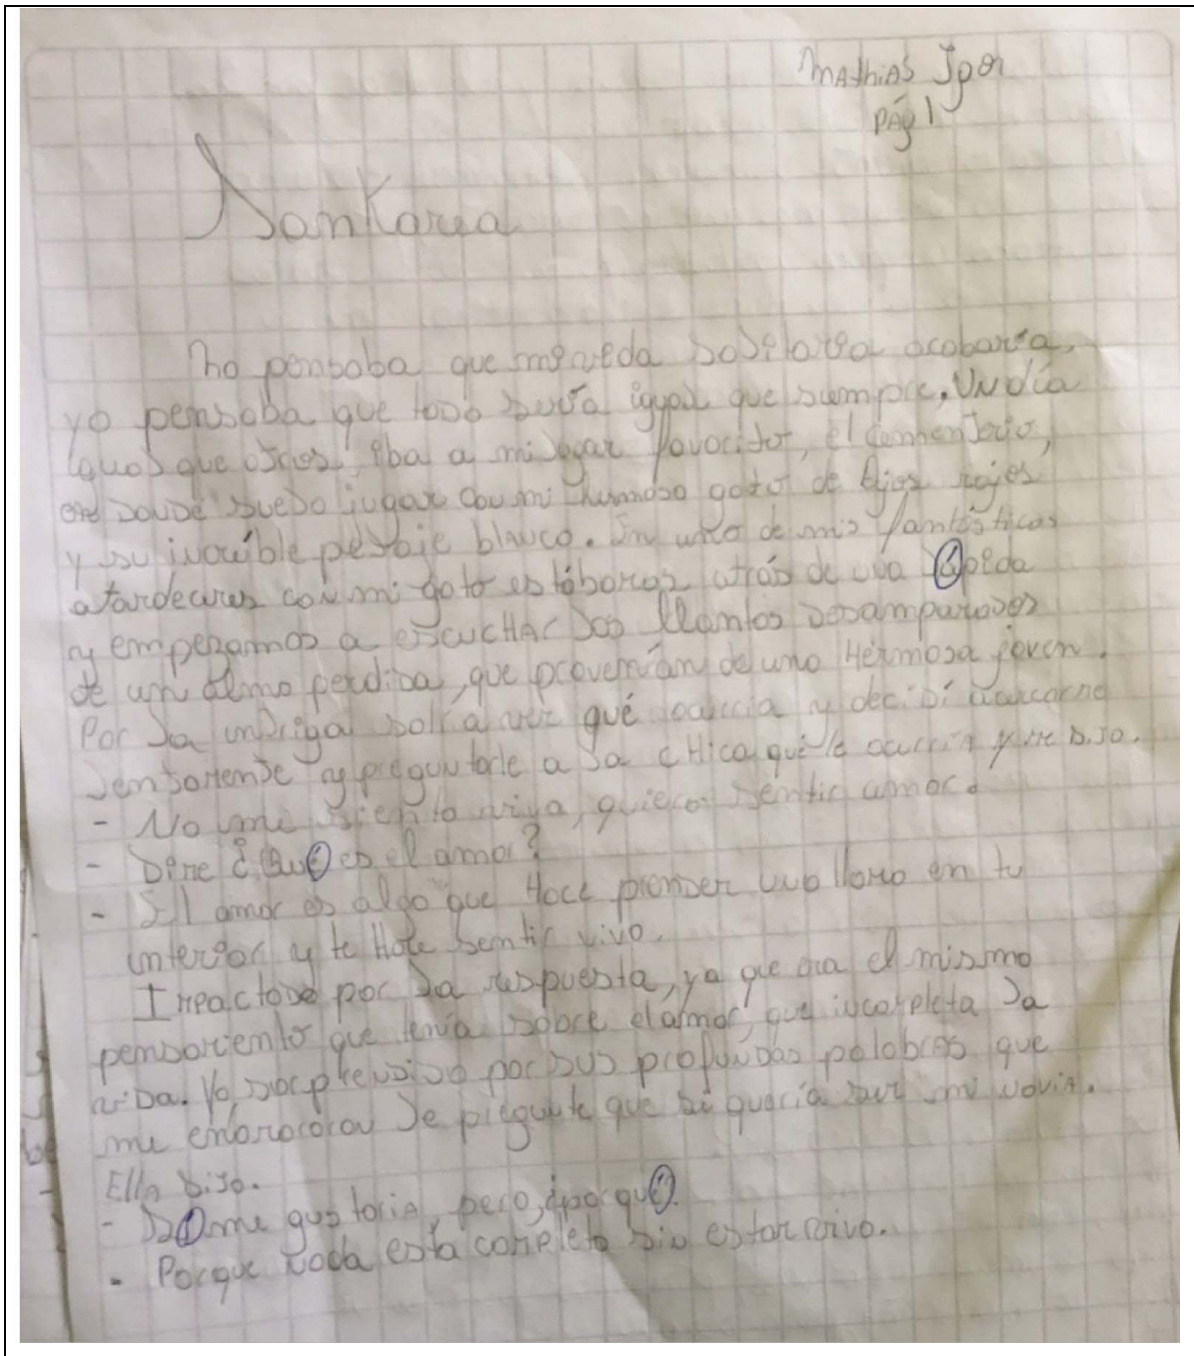 Mathias Igor
Pág 1
Sankarea
no pensaba que mi vida solitaria acabaría,
yo pensaba que todo sería igual que siempre. Un día
igual que otros, iba a mi lugar favorito, el cementerio,
en donde suelo jugar con mi hermoso gato de ojos rojos
y su increíble pelaje blanco. En uno de mis fantásticos
atardeceres con mi gato estábamos atrás de una lápida
y empezamos a escuchar los llantos desamparados
de un alma perdida, que provenían de una Hermosa joven.
Por la intriga salí a ver qué ocurría y decidí acercarme
lentamente y preguntarle a la cHica qué le ocurría y me dijo.
- No me siento viva, quiero sentir amor.
- Dime ¿Qué es el amor?
- El amor es algo que Hace prender una llama en tu
interior y te Hace sentir vivo.
Impactado por la respuesta, ya que era el mismo
pensamiento que tenía sobre el amor, que completa la
vida. Yo sorprendido por sus profundas palabras que
me enamoraron le pregunte que si quería ser mi novia.
Ella dijo.
- Sí me gustaria, pero, ¿por qué.
- Porque nada esta completo sin estar vivo.